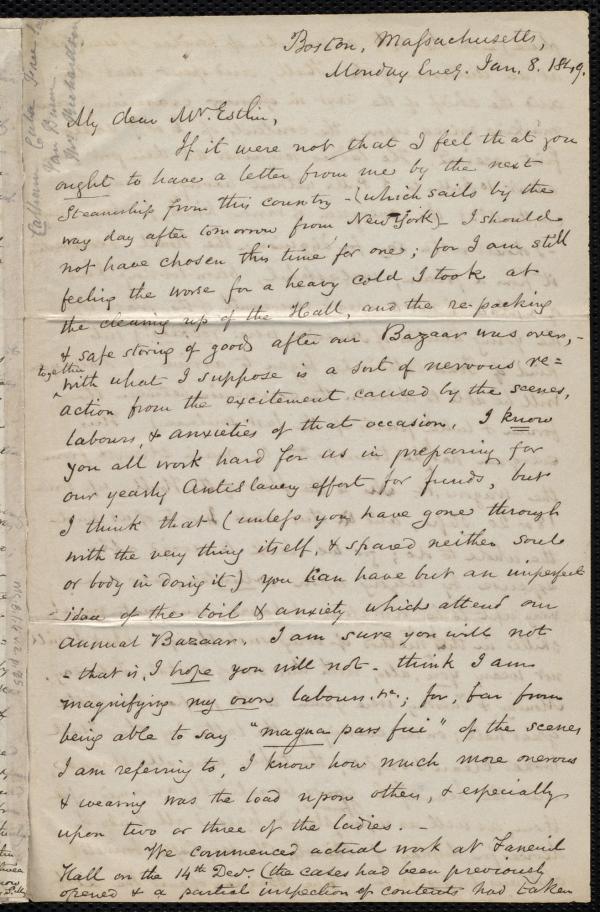 Boston, Massachusetts,
Monday Eveg. Jan. 8. 1849.
My dear Mr. Estlin,
If it were not that I feel that you
ought to have a letter from me by the next
Steamship from this country - (which sails by the
way day after tomorrow from New York) - I should
not have chosen this time for one; for I am still
feeling the worse for a heavy cold I took at
the clearing up of the Hall, and the re-packing
& safe storing of goods after our Bazaar was over, -
together with what I suppose is a sort of nervous re=
action from the excitement caused by the scenes,
labours, & anxieties of that occasion. I know
you all work hard for us in preparing for
our yearly Antislavery effort for funds, but
I think that (unless you have gone through
with the very thing itself, & spared neither soul
or body in doing it) you can have but an imperfect
idea of the toil & anxiety which attend our
Annual Bazaar. I am sure you will not
- that is, I hope you will not - think I am
magnifying my own labours, &c.; for, far from
being able to say "magna pars fui" of the scenes
I am referring to, I know how much more onerous
& wearing was the load upon others, & especially
upon two or three of the ladies. -
We commenced actual work at Faneuil
Hall on the 14th Decr. (the cases had been previously
opened & a partial inspection of contents had taken